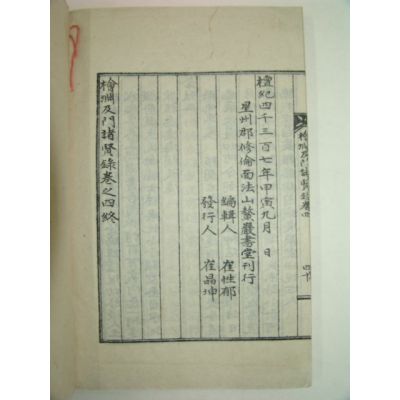 檜淵及門諸賢錄卷四
四十
檀紀四千三百七年甲寅九月　日
星州郡修倫面法山鰲巖書堂刊行
編輯人　崔性郁
發行人　崔晶坤
檜淵及門諸賢錄卷之四終